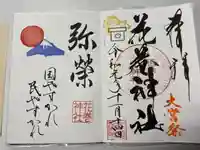 奉拝
大嘗祭
花巻神社
令和元年十一月十四日
弥榮
花巻神社
国やすかれ
民やすかれ